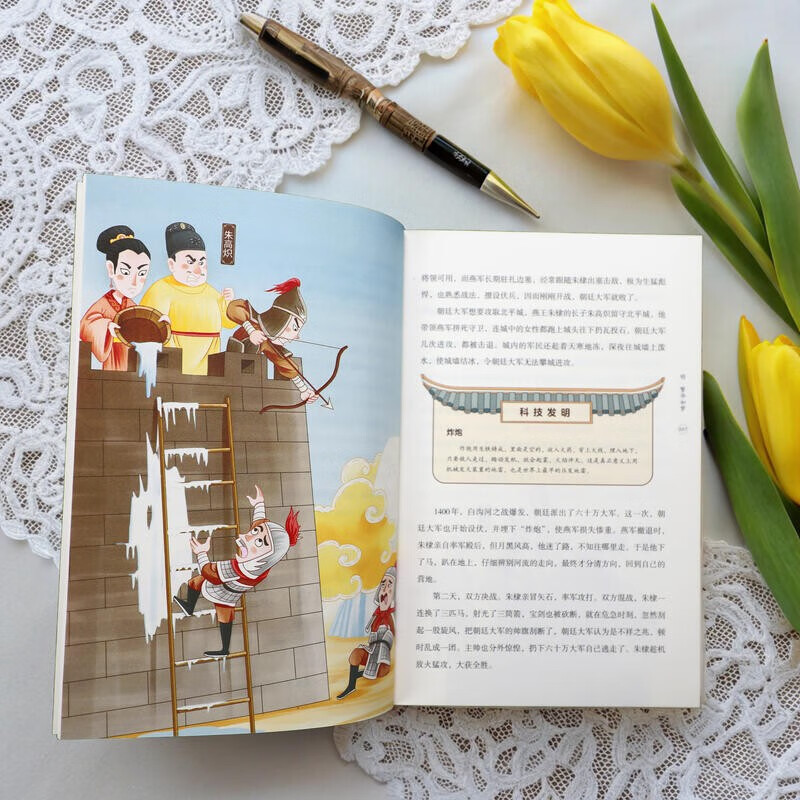 朱高炽
将领可用，而燕军长期驻扎边塞，经常跟随朱棣出塞击敌，极为生猛彪
悍，也熟悉战法，擅设伏兵，因而刚刚开战，朝廷大军就败了。
朝廷大军想要攻取北平城，燕王朱棣的长子朱高炽留守北平城，他
带领燕军拼死守卫，连城中的女性都跑上城头往下扔瓦投石，朝廷大军
几次进攻，都被击退。城内的军民还趁着天寒地冻，深夜往城墙上泼
水，使城墙结冰，令朝廷大军无法攀城进攻。
科技发明
炸炮
炸炮用生铁铸成，里面是空的，放入火药，背上火线，埋入地下，
只要敌人走过，踏动发机，就会起雷，火焰冲天。这是真正意义上用
机械发火装置的地雷，也是世界上最早的压发地雷。
1400年，白沟河之战爆发，朝廷派出了六十万大军。这一次，朝
廷大军也开始设伏，并埋下“炸炮”，使燕军损失惨重。燕军撤退时，
朱棣亲自率军殿后，但月黑风高，他迷了路，不知往哪里走。于是他下
了马，趴在地上，仔细辨别河流的走向，最终才分清方向，回到自己的
营地。
第二天，双方决战。朱棣亲冒矢石，率军攻打。双方混战，朱棣一
连换了三匹马，射光了三筒箭，宝剑也被砍断，就在危急时刻，忽然刮
起一股旋风，把朝廷大军的帅旗刮断了，朝廷大军认为是不祥之兆，顿
时乱成一团。主帅也分外惊惶，扔下六十万大军自己逃走了。朱棣趁机
放火猛攻，大获全胜。